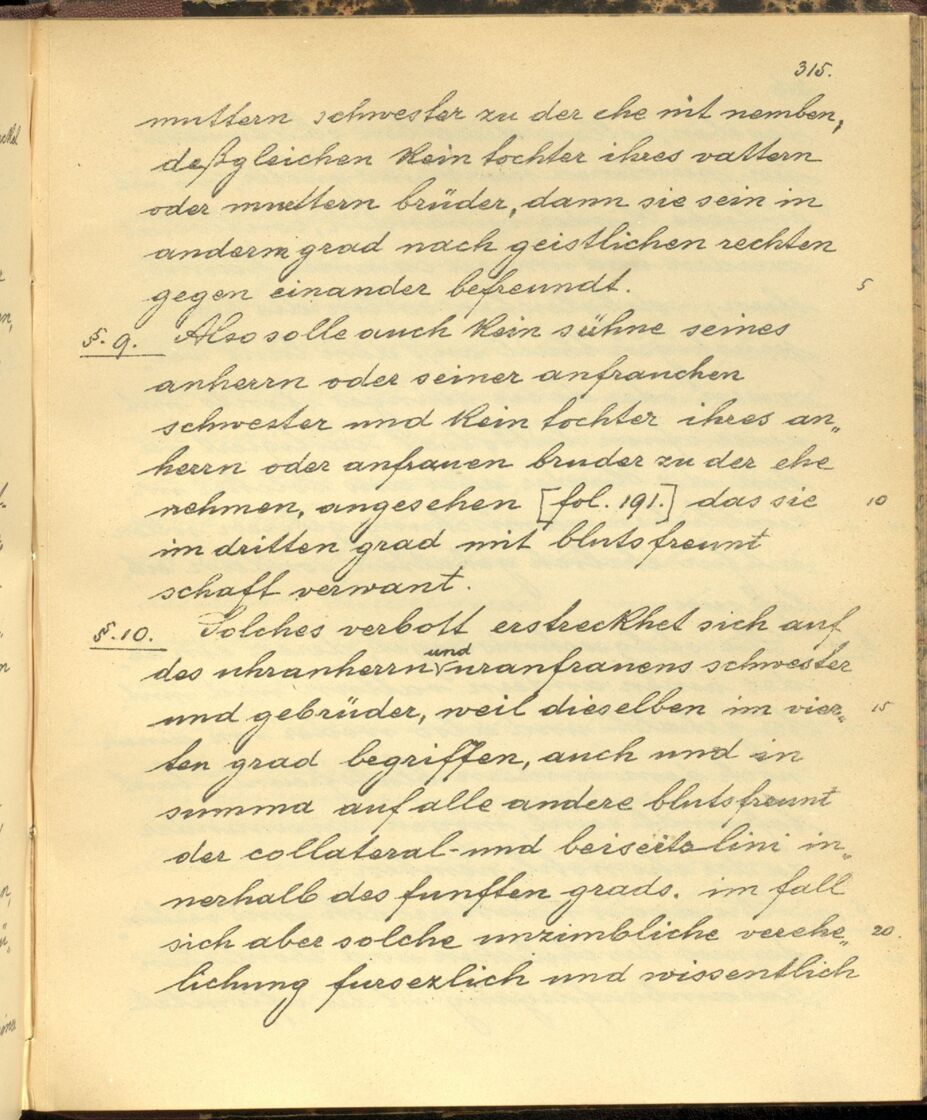 315.
muttern schwester zu der ehe nit nemben,
deßgleichen kein tochter ihres vattern
oder muettern brüder, dann sie sein in
anderm grad nach geistlichen rechten
gegen einander befreundt. 5
§. 9. Also solle auch kein sühne seines
anherrn oder seiner anfrauchen
schwester und kein tochter ihres an„
herrn oder anfrauen bruder zu der ehe
nehmen, angesehen [fol. 191.] das sie 10
im dritten grad mit blutsfreunt
schaft verwant.
§. 10. Solches verbott erstreckhet sich auf
des uhranherrn und uranfrauens schwester
und gebrüder, weil dieselben im vier„ 15
ten grad begriffen, auch und in
summa auf alle andere blutsfreunt
der collateral- und beiseits lini in„
nerhalb des funften grads. im fall
sich aber solche unzimbliche verehe„ 20.
lichung fursezlich und wissentlich